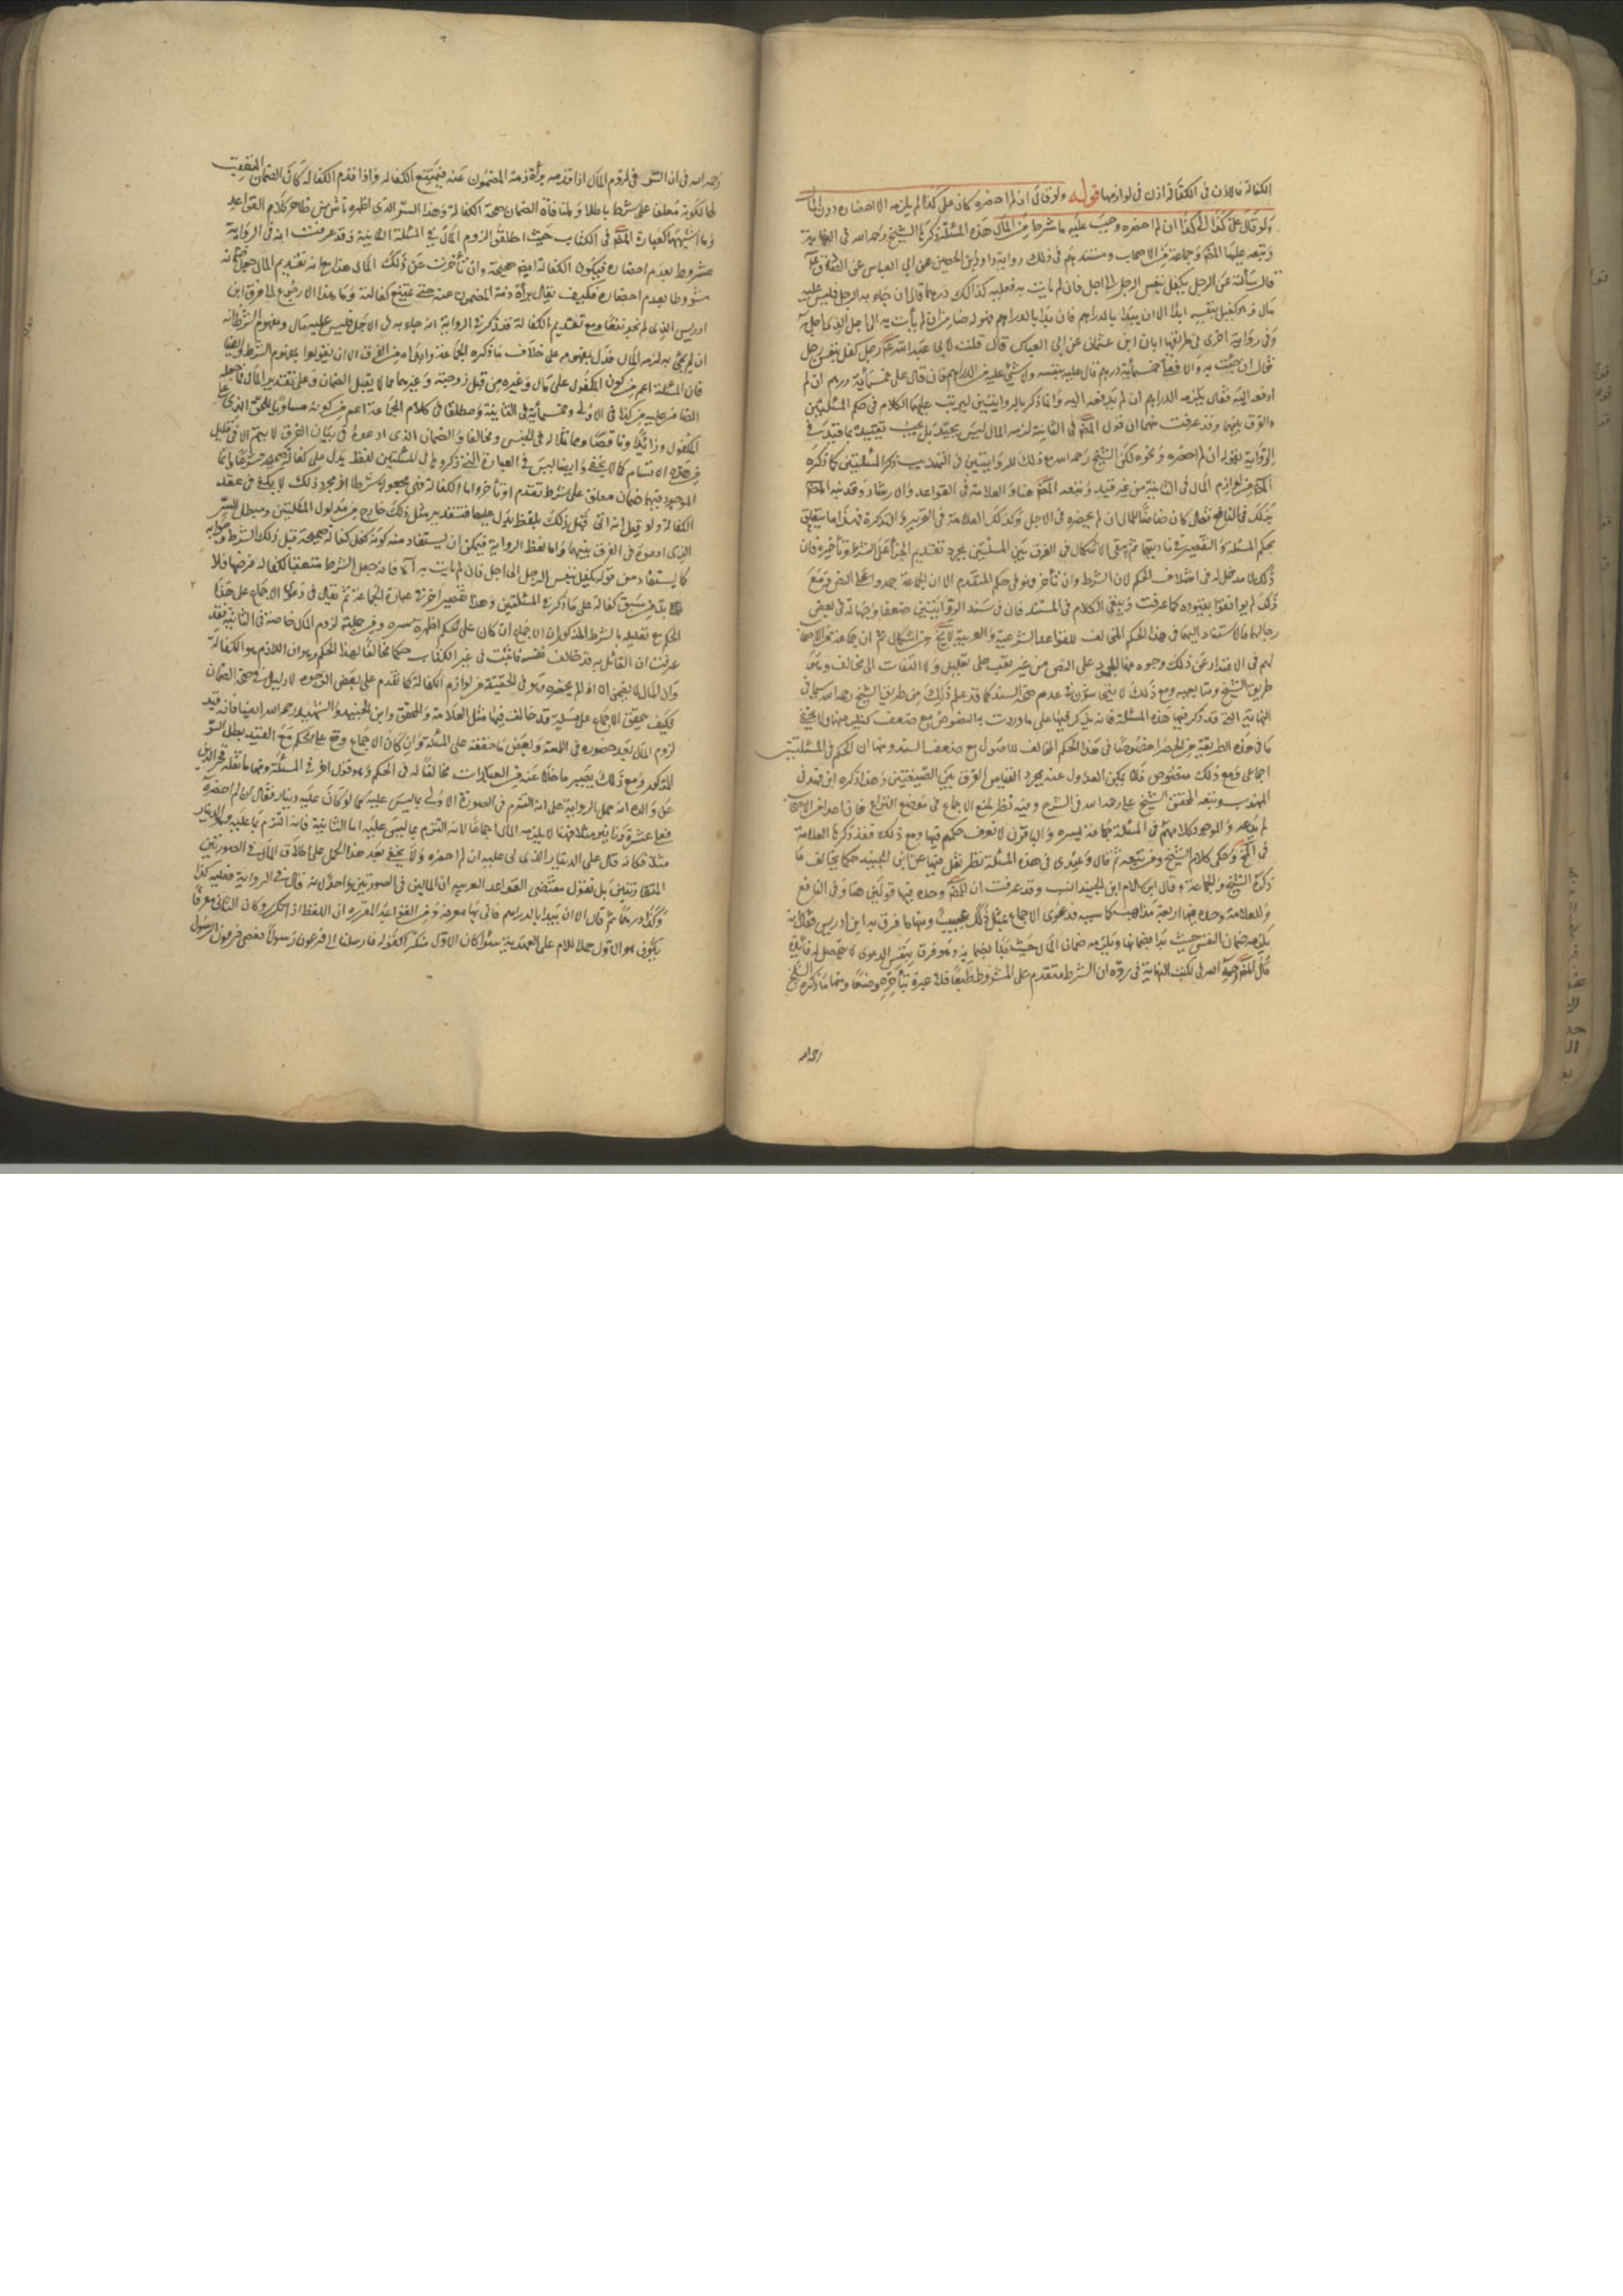 الكفالة فالاذن فى الكفالة اذن فى لوازمها قوله ولو قال ان لم احضره كان على كذا لم يلزمه الا احضاره دون المال
ولو قال على كذا الى كذا ان لم احضره وجب عليه ما شرط من المال هذه المسئلة ذكرها الشيخ رحمه الله فى النهاية
وتبعه عليها المص وجماعة من الاصحاب ومستندهم فى ذلك رواية داود بن الحصين عن ابى العباس عن الصادق ع
قال سألته عن الرجل يكفل بنفس الرجل الى اجل فان لم يات به فعليه كذا كذا درهما قال ان جاء به الى اجل فليس عليه
مال وهو كفيل بنفسه ابدا الا ان يبدا بالدراهم فان بدا بالدراهم فهو له ضامن ان لم يأت به الى الاجل الذى اجله
وفى رواية اخرى فى طريقها ابان ابن عثمان عن ابى العباس قال قلت لابى عبد الله ع رجل كفل بنفس رجل
فقال ان جئت به والا فعلى خمسمأية درهم قال عليه بنفسه ولا شئ عليه من الدراهم فان قال على خمسمأية درهم ان لم
ادفعه اليه فقال يلزمه الدراهم ان لم يدفعه اليه وانما ذكر الروايتين ليترتب عليهما الكلام فى حكم المسئلتين
والفرق بينهما وقد عرفت منهما ان قول المص فى الثانية لزمه المال ليس بجيد بل يجب تقييده بما قيد فى
الرواية بقوله ان لم احضره ونحوه لكن الشيخ رحمه الله مع ذلك للروايتين فى التهذيب ذكر المسئلتين كما ذكره
المص من لوازم المال فى الثانية من غير قيد وتبعه المص هنا والعلامة فى القواعد والارشاد وقد نبه المص
بذلك فى النافع فقال كان ضامنا للمال ان لم يحضره فى الاجل وكذلك العلامة فى التحرير والتذكرة فهذا ما يتعلق
بحكم المسئلة والتقصير فى تاديتها ثم يبقى الاشكال فى الفرق بين المسئلتين بمجرد تقديم الجزاء على الشرط وتأخيره فان
ذلك لا مدخل له فى اختلاف الحكم لان الشرط وان تأخر فهو فى حكم المتقدم الا ان الجماعة جمدوا على النص ومع
ذلك لم يوافقوا بقيوده كما عرفت وبقى الكلام فى المستند فان فى سند الروايتين ضعفا وجهالة فى بعض
رجالهما فالاستناد اليهما فى هذا الحكم المخالف للقواعد الشرعية والعربية لا يخ من اشكال ثم ان جماعة من الاصحاب
لهم فى الاعتذار عن ذلك وجوه منها الجمود على النص من غير تعب على تعليل ولا التفات الى مخالف وهى
طريق الشيخ ومتابعيه ومع ذلك لا ينبغى عدم صحة السند كما قد علم ذلك من طريق الشيخ رحمه الله سيما فى
النهاية التى قد ذكر فيها هذه المسئلة فانه يذكر فيها على ما وردت به النصوص مع ضعف كثير منها ولا يخفى
ما فى هذه الطريقة من الخطر خصوصا فى هذا الحكم المخالف للاصول مع ضعف السند ومنها ان الحكم فى المسئلتين
اجماعى ومع ذلك منصوص فلا يمكن العدول عنه بمجرد القياس الفرق بين الصيغتين وهذا ذكره ابن فهد فى
المهذب وتبعه المحقق الشيخ على رحمه الله فى الشرح وفيه نظر لمنع الاجماع فى موضع النزاع فان احدا من الاصحاب
لم يدعه والموجود كلامهم فى المسئلة جماعة يسيره والباقون لا نعرف حكمهم فيها ومع ذلك فقد ذكرها العلامة
فى المخ وحكى كلام الشيخ ومن تبعه ثم قال وعندى فى هذه المسئلة نظر ونقل فيها عن ابن الجنيد حكما يخالف ما
ذكره الشيخ والجماعة وقال ابن كلام ابن الجنيد انسب وقد عرفت ان للمص وحده فيها قولين هنا وفى النافع
وللعلامة وحده فيها اربعة مذاهب فدعوى الاجماع بمثل ذلك عجيب ومنها ما فرق به ابن ادريس فقال انه
يلزمه ضمان النفس حيث بدا بضمانها ويلزمه ضمان المال حيث بدا بضمانه وهو فرق بنفس الدعوى لا يتحصل له فائدة
قال المص رحمه الله فى نكت النهاية فى رده ان الشرط متقدم على المشروط طبعا فلا عبرة بتأخره وضعا ومنها ما ذكره الشيخ
رحمه الله
رحمه الله فى ان السر فى لزوم المال اذا قدمه براءة ذمة المضمون عنه فيمتنع الكفالة واذا قدم الكفالة كان الضمان المتعقب
لها لكونه معلقا على شرط باطلا ولمنافاة الضمان صحة الكفالة وهذا السر الذى اظهره ناش من ظاهر كلام القواعد
وما اشبهها كعبارة المص فى الكتاب حيث اطلق لزوم المال فى المسئلة الثانية وقد عرفت انه فى الرواية
مشروط بعدم احضاره فيكون الكفالة ايضا صحيحة وان تأخرت عن ذلك المال هذا مع انه تقديم المال جعل ضمانه
مشروطا بعدم احضاره فكيف يقال ببراءة ذمة المضمون عنه حتى يمتنع كفالته وما هذا الا رجوع الى ما فرق ابن
ادريس الذى لم نجد نفعا ومع تقديم الكفالة قد ذكر فى الرواية انه جاء به فى الاجل فليس عليه مال ومفهوم الشرط انه
ان لم يجئ به لزمه المال فدل بمفهومه على خلاف ما ذكره الجماعة وابداه من الفرق الا ان يقولوا بمفهوم الشرط وايضا
فان المسئلة اعم من كون المكفول على مال وغيره من قبل زوجية وغيرهما مما لا يقبل الضمان وعلى تقدير المال فما جعله
الضامن عليه من كذا فى الاولى وخمسمأية فى الثانية ومطلقا فى كلام الجماعة اعم من كونه مساويا للحق الذى على
المكفول وزائدا وناقصا ومماثلا له فى الجنس ومخالفا والضمان الذى ادعوه فى بيان الفرق لا يتم الا فى قليل
من هذه الاقسام كما لا يخفى وايضا ليس فى العبارة التى ذكروها فى المسئلتين لفظ يدل على كفالة صحيحة شرعا وانما
الموجود فيها ضمان معلق على شرط تقدم او تأخر واما الكفالة فهى مجعولة شرطا لا غير مجرد ذلك لا يكفى فى عقد
الكفالة ولو قيل انه اتى قبل ذلك بلفظ يدل عليها فتقدير مثل ذلك خارج من مدلول المسئلتين ومبطل للسر
الذى ادعوه فى الفرق بينهما واما لفظ الرواية فيمكن ان يستفاد منه كونه كفل كفالة صحيحة قبل ذلك الشرط وجوابه
كما يستفاد من قوله يكفل بنفس الرجل الى اجل فان لم يات به الخ فانه جعل الشرط متعقبا لكفالة فرضها فلا
بد من سبق كفالة على ما ذكر فى المسئلتين وهذا تقصير آخر فى عبارة الجماعة ثم نقول فى دعوى الاجماع على هذا
الحكم مع تقييده بالشرط المذكور ان الاجماع ان كان على الحكم اظهره ومن جملته لزوم المال خاصة فى الثانية فقد
عرفت ان القائل به قد خالف نفسه فاثبت فى غير الكتاب حكما مخالفا لهذا الحكم وهو ان اللازم هو الكفالة
وان المال لا يضمن الا اذا لم يحضره وهو فى الحقيقة من لوازم الكفالة كما تقدم على بعض الوجوه لا دليل فى صحة الضمان
فكيف يتحقق الاجماع على مسئلة قد خالف فيها مثل العلامة والمحقق وابن الجنيد والشهيد رحمه الله ايضا فانه قيد
لزوم المال بعدم حضوره فى اللمعة وبعض ما حققه على المسئلة وان كان الاجماع وقع على الحكم مع القيد بطل السر
المذكور ومع ذلك يصير ما خلا عنه من العبارات مخالفا له فى الحكم وهو قول آخر فى المسئلة ومنها ما نقله فخر الدين
عن والده انه حمل الرواية على انه التزم فى الصورة الاولى بما ليس عليه كما لو كان عليه دينار فقال ان لم احضره
فعلى عشرة دنانير مثلا فهنا لا يلزمه المال اجماعا لانه التزم بما ليس عليه اما الثانية فانه التزم بما عليه وهو الدينار
مثلا فكانه قال على الدينار الذى لى عليه ان لم احضره ولا يخفى بعد هذا الحمل على اطلاق المال فى الصورتين
المتقاربتين بل نقول مقتضى القواعد العربية ان المالين فى الصورتين واحد لانه قال فى الرواية فعليه كذا
وكذا درهما ثم قال الا ان يبدا بالدراهم فاتى بها معرفة ومن القواعد المقررة ان اللفظ اذا تكرر وكان الثانى معرفا
يكون هو الاول حملا للام على العهدية سواء كان الاول منكرا كقوله فارسلنا الى فرعون رسولا فعصى فرعون الرسول